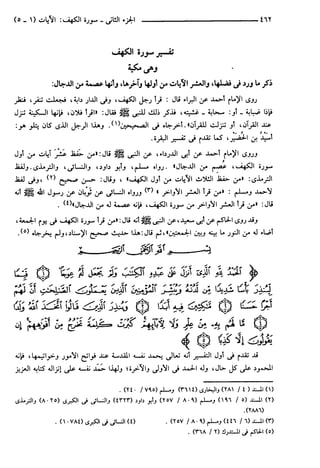 ٤٦٢ ــــــــــــ الجزء الثاني - سورة الكهف: الآيات (١ - ٥)
تفسير سورة الكهف
وهي مكية
ذكر ما ورد في فضلها، والعشر الآيات من أولها وآخرها، وأنها عصمة من الدجال:
روى الإمام أحمد عن البراء قال : قرأ رجل الكهف، وفي الدار دابة، فجعلت تنفر، فنظر
فإذا ضبابة - أو: سحابة - غشيته، فذكر ذلك للنبي ﷺ فقال: «اقرأ فلان، فإنها السكينة تنزل
عند القرآن، أو تنزلت للقرآن». أخرجاه في الصحيحين(١). وهذا الرجل الذي كان يتلو هو:
أسيد بن الحضير، كما تقدم في تفسير البقرة.
وروى الإمام أحمد عن أبي الدرداء، عن النبي ﷺ قال: «من حفظ عشر آيات من أول
سورة الكهف، عصم من الدجال». رواه مسلم، وأبو داود، والنسائي، والترمذي. ولفظ
الترمذي: «من حفظ الثلاث الآيات من أول الكهف» ، وقال: حسن صحيح (٢) .وفي لفظ
لأحمد ومسلم : «من قرأ العشر الأواخر» (٣) ورواه النسائي عن ثوبان عن رسول الله ﷺ أنه
قال: «من قرأ العشر الأواخر من سورة الكهف، فإنه عصمة له من الدجال»(٤) .
وقد روى الحاكم عن أبي سعيد، عن النبي ﷺ أنه قال: «من قرأ سورة الكهف في يوم الجمعة،
أضاء له من النور ما بينه وبين الجمعتين»، ثم قال: هذا حديث صحيح الإسناد، ولم يخرجاه (٥).
بسم الله الرحمن الرحيم
الحمد لله الذي أنزل على عبده الكتاب ولم يجعل له عوجا ١
قد تقدم في أول التفسير أنه تعالى يحمد نفسه المقدسة عند فواتح الأمور وخواتيمها، فإنه
المحمود على كل حال، وله الحمد في الأولى والآخرة؛ ولهذا حمد نفسه على إنزاله كتابه العزيز
(١) المسند (٤ / ٢٨١) والبخاري (٣٦١٤) ومسلم (٧٩٥ / ٢٤٠) .
(٢) المسند (٥ / ١٩٦) ومسلم (٨٠٩ / ٢٥٧) وأبو داود (٤٣٢٣) والنسائي في الكبرى (٨٠٢٥) والترمذي
(٢٨٨٦).
(٣) المسند (٦ / ٤٤٦) ومسلم (٨٠٩ / ٢٥٧) .
(٤) النسائي في الكبرى (١٠٧٨٤) .
(٥) الحاكم في المستدرك (٢ / ٣٦٨) .